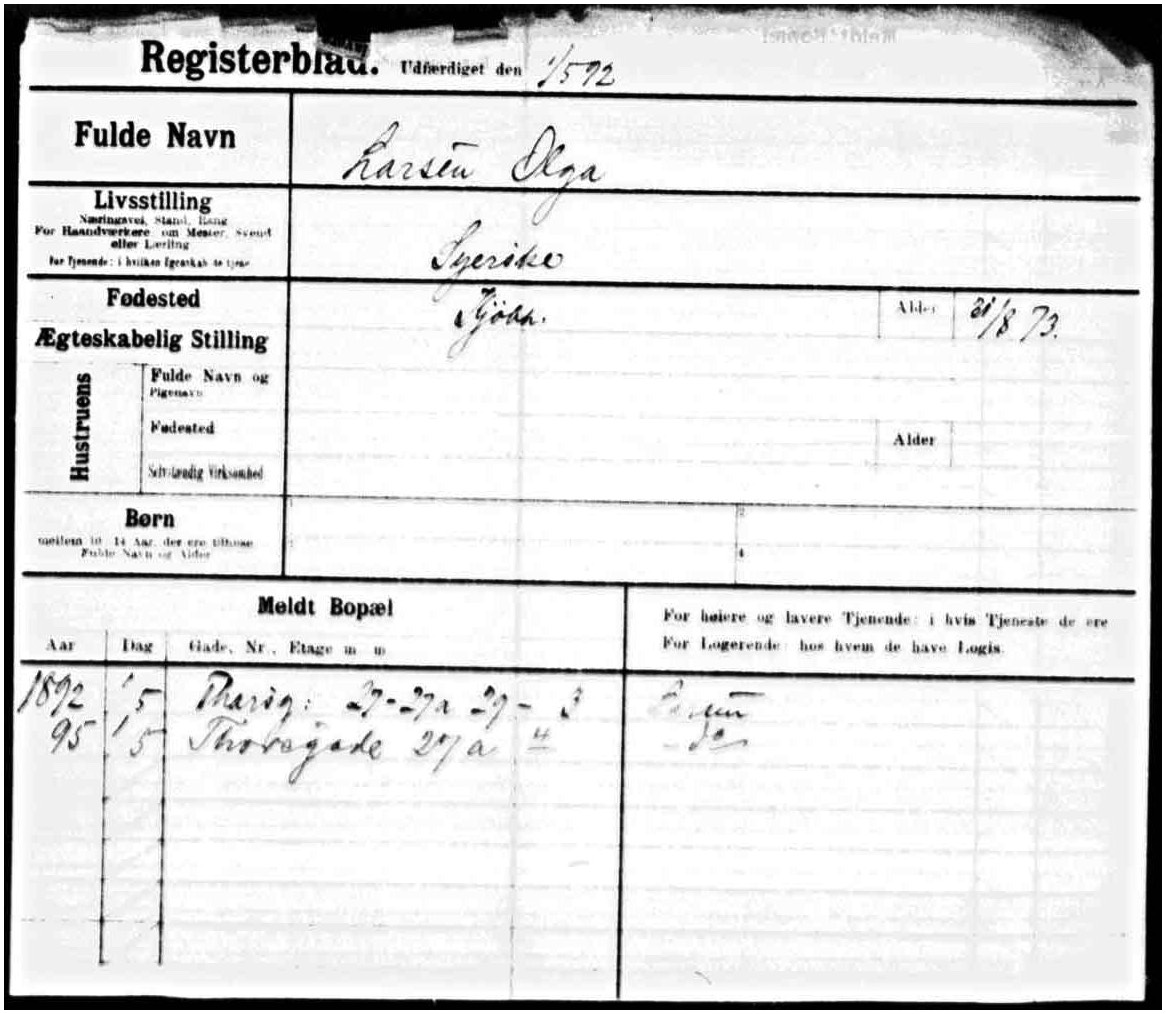 Registerblad. Udfærdiget den 1/5 92
Fulde Navn Larsen Olga
Livsstilling
Næringsvei, Stand, Rang
For Haandværkere om Mester, Svend
eller Lærling
For Tjenende: i hvilken Egenskab de tjene
Syerske
Fødested Kjøbh. Alder 31/8 73.
Ægteskabelig Stilling
Hustruens
Fulde Navn og
Pigenavn
Fødested Alder
Selvstændig Virksomhed
Børn
mellem 10-14 Aar, der ere tilhuse
Fulde Navn og Alder
2
4
Meldt Bopæl
For høiere og lavere Tjenende: i hvis Tjeneste de ere
For Logerende: hos hvem de have Logis.
Aar Dag Gade, Nr., Etage m m
1892 1/5 27-27a 29- 3 Larsen
95 1/5 Thorsgade 27a 4 do